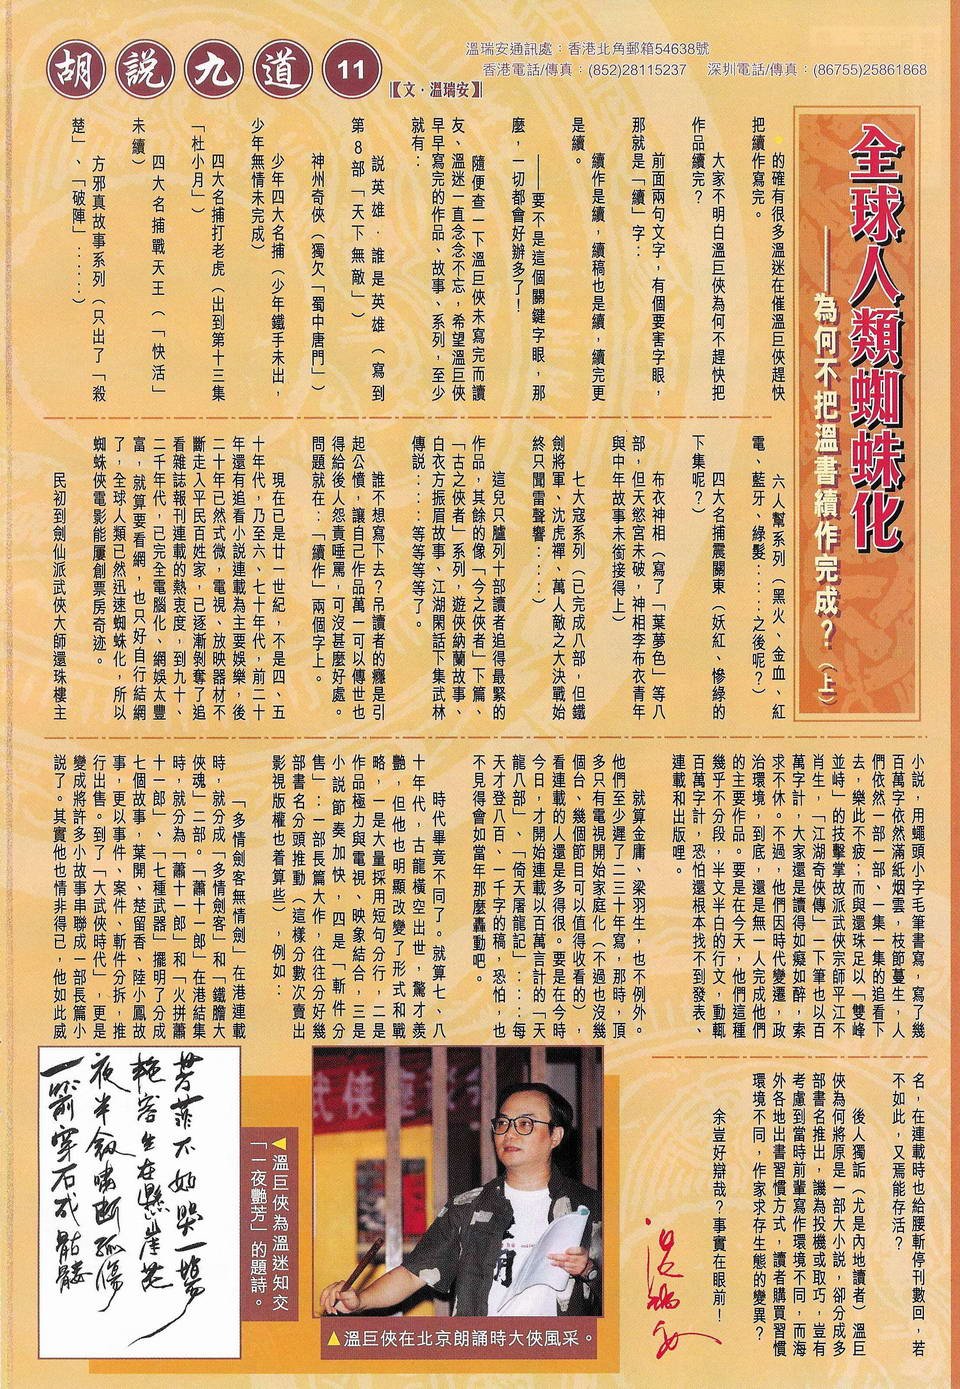 胡說九道 11
【文·溫瑞安】
溫瑞安通訊處：香港北角郵箱54638號
香港電話/傳真：(852)28115237 深圳電話/傳真：(86755)25861868
全球人類蜘蛛化
——為何不把溫書續作完成？（上）
的確有很多溫迷在催溫巨俠趕快
把續作寫完。
大家不明白溫巨俠為何不趕快把
作品續完？
前面兩句文字，有個要害字眼，
那就是「續」字：
續作是續，續稿也是續，續完更
是續。
——要不是這個關鍵字眼，那
麼，一切都會好辦多了！
隨便查一下溫巨俠未寫完而讀
友、溫迷一直念念不忘，希望溫巨俠
早早寫完的作品、故事、系列，至少
就有：
說英雄·誰是英雄（寫到
第8部「天下無敵」）
神州奇俠（獨欠「蜀中唐門」）
少年四大名捕（少年鐵手未出，
少年無情未完成）
四大名捕打老虎（出到第十三集
「杜小月」）
四大名捕戰天王（「快活」
未續）
方邪真故事系列（只出了「殺
楚」、「破陣」……）
六人幫系列（黑火、金血、紅
電、藍牙、綠髮……之後呢？）
四大名捕震關東（妖紅、慘綠的
下集呢？）
布衣神相（寫了「葉夢色」等八
部，但天慾宮未破，神相李布衣青年
與中年故事未銜接得上）
七大寇系列（已完成八部，但鐵
劍將軍、沈虎禪、萬人敵之大決戰始
終只聞雷聲響……）
這兒只臚列十部讀者追得最緊的
作品，其餘的像「今之俠者」下篇、
「古之俠者」系列，遊俠納蘭故事、
白衣方振眉故事、江湖閑話下集武林
傳說……等等等等了。
誰不想寫下去？吊讀者的癮是引
起公憤，讓自己作品萬一可以傳世也
得給後人怨責唾罵，可沒甚麼好處。
問題就在：「續作」兩個字上。
現在已是廿一世紀，不是四、五
十年代，乃至六、七十年代，前二十
年還有追看小說連載為主要娛樂，後
二十年已然式微，電視、放映器材不
斷走入平民百姓家，已逐漸剝奪了追
看雜誌報刊連載的熱衷度，到九十、
二千年代，已完全電腦化、網娛太豐
富，就算要看網，也只好自行結網
了，全球人類已然迅速蜘蛛化，所以
蜘蛛俠電影能屢創票房奇迹。
民初到劍仙派武俠大師還珠樓主
小說，用蠅頭小字毛筆書寫，寫了幾
百萬字依然滿紙烟雲，枝節蔓生，人
們依然一部一部、一集一集的追看下
去，樂此不疲；而與還珠足以「雙峰
並峙」的技擊掌故派武俠宗師平江不
肖生，「江湖奇俠傳」一下筆也以百
萬字計，大家還是讀得如癡如醉，索
求不休。不過，他們因時代變遷，政
治環境，到底，還是無一人完成他們
的主要作品。要是在今天，他們這種
幾乎不分段，半文半白的行文，動輒
百萬字計，恐怕還根本找不到發表、
連載和出版哩。
就算金庸、梁羽生，也不例外。
他們至少遲了二三十年寫，那時，頂
多只有電視開始家庭化（不過也沒幾
個台、幾個節目可以值得收看的），
看連載的人還是多得很。要是在今時
今日，才開始連載以百萬言計的「天
龍八部」、「倚天屠龍記」……每
天才登八百、一千字的稿，恐怕，也
不見得會如當年那麼轟動吧。
時代畢竟不同了。就算七、八
十年代，古龍橫空出世，驚才羨
艷，但他也明顯改變了形式和戰
略，一是大量採用短句分行，二是
作品極力與電視、映象結合，三是
小說節奏加快，四是「斬件分
售」：一部長篇大作，往往分好幾
部書名分頭推動（這樣分數次賣出
影視版權也着算些），例如：
「多情劍客無情劍」在港連載
時，就分成「多情劍客」和「鐵膽大
俠魂」二部。「蕭十一郎」在港結集
時，就分為「蕭十一郎」和「火拼蕭
十一郎」、「七種武器」擺明了分成
七個故事，葉開、楚留香、陸小鳳故
事，更以事件、案件、斬件分拆，推
行出售。到了「大武俠時代」，更是
變成將許多小故事串聯成一部長篇小
說了。其實他也情非得已，他如此威
名，在連載時也給腰斬停刊數回，若
不如此，又焉能存活？
後人獨詬（尤是內地讀者）溫巨
俠為何將原是一部大小說，卻分成多
部書名推出，譏為投機或取巧，豈有
考慮到當時前輩寫作環境不同，而海
外各地出書習慣方式，讀者購買習慣
環境不同，作家求存生態的變異？
余豈好辯哉？事實在眼前！
溫瑞安
▲溫巨俠在北京朗誦時大俠風采。
◀溫巨俠為溫迷知交
「一夜艷芳」的題詩。
夜半劍嘯斷孤傷
一箭穿石成骷髏